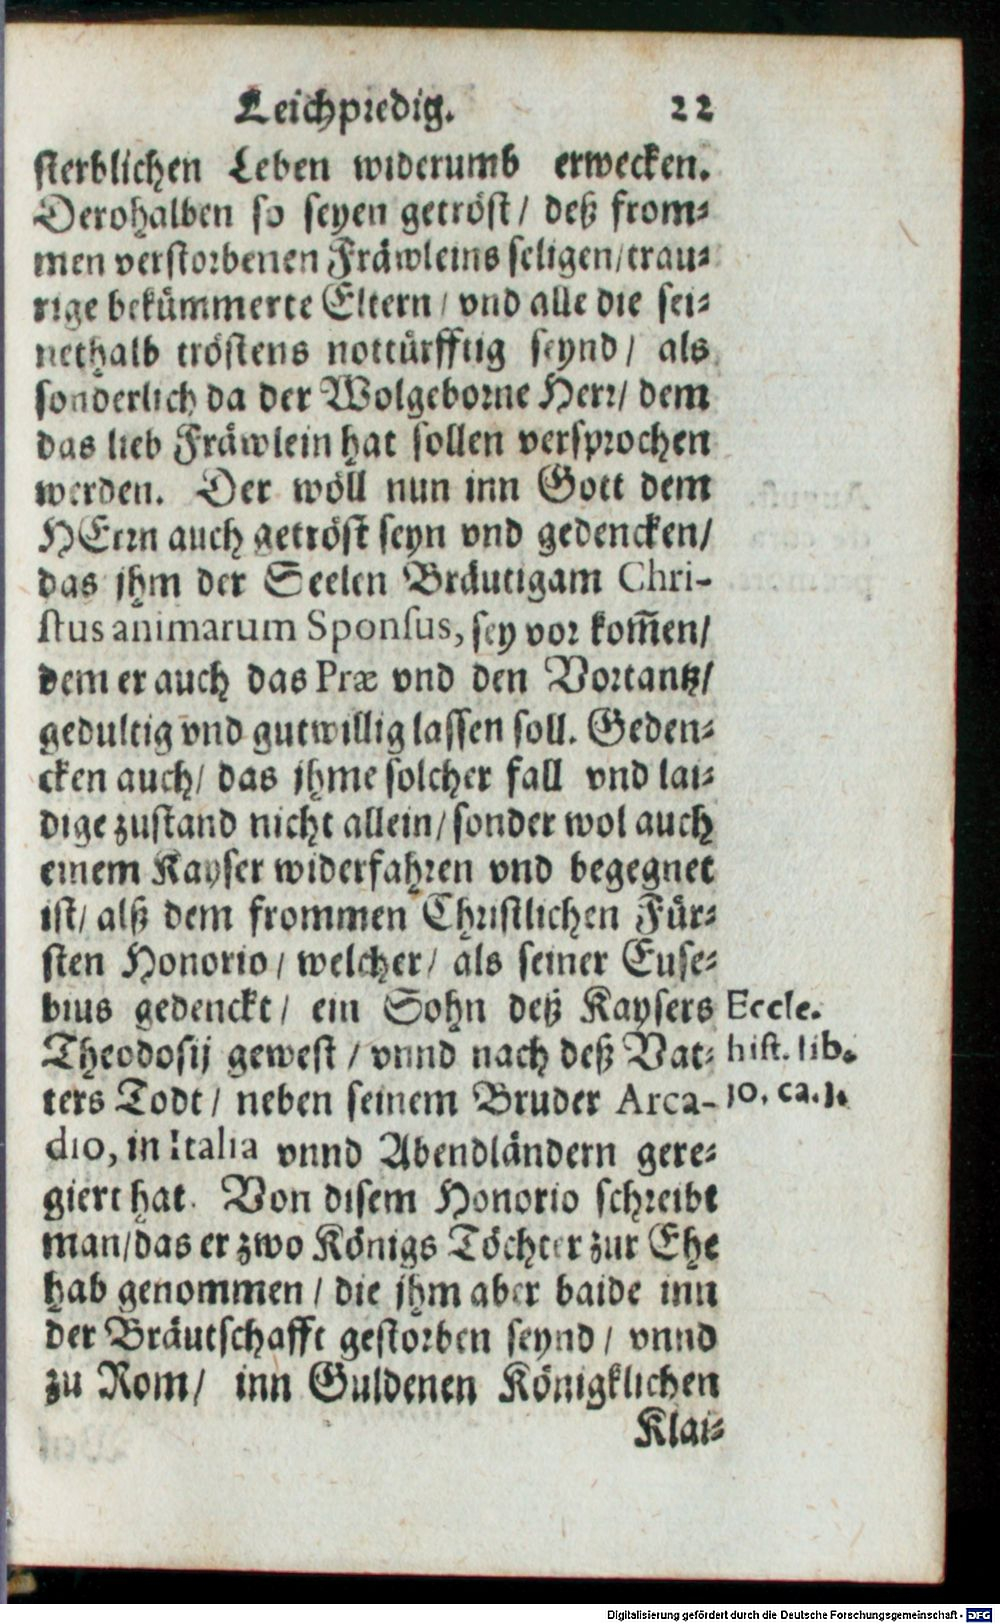 Leichpredig. 22
sterblichen Leben widerumb erwecken.
Derohalben so seyen getröst / deß from⸗
men verstorbenen Fräwleins seligen / trau⸗
rige bekümmerte Eltern / vnd alle die sei⸗
nethalb tröstens nottürfftig seynd / als
sonderlich da der Wolgeborne Herr / dem
das lieb Fräwlein hat sollen versprochen
werden. Der wöll nun inn Gott dem
HErrn auch getröst seyn vnd gedencken /
das jhm der Seelen Bräutigam Chri-
stus animarum Sponsus, sey vor kom̃en /
dem er auch das Præ vnd den Vortantz /
gedultig vnd gutwillig lassen soll. Geden⸗
cken auch / das jhme solcher fall vnd lai⸗
dige zustand nicht allein / sonder wol auch
einem Kayser widerfahren vnd begegnet
ist / alß dem frommen Christlichen Für⸗
sten Honorio / welcher / als seiner Euse⸗
bius gedenckt / ein Sohn deß Kaysers
Theodosij gewest / vnnd nach deß Vat⸗
ters Todt / neben seinem Bruder Arca-
dio, in Italia vnnd Abendländern gere⸗
giert hat. Von disem Honorio schreibt
man / das er zwo Königs Töchter zur Ehe
hab genommen / die jhm aber baide inn
der Bräutschafft gestorben seynd / vnnd
zu Rom / inn Guldenen Königklichen
Klai⸗
Eccle.
hist. lib.
10. ca. 1.
Digitalisierung gefördert durch die Deutsche Forschungsgemeinschaft - DFG